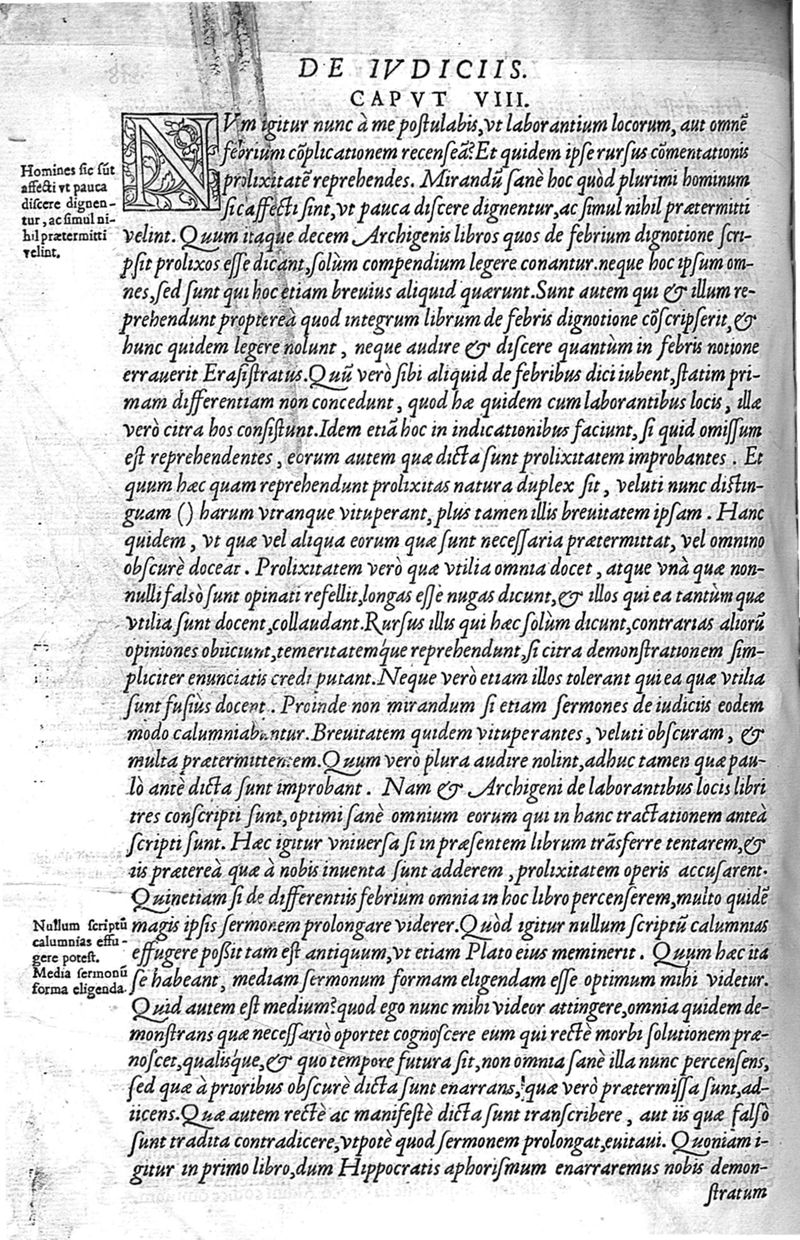 DE IVDICIIS.
CAPVT VIII.
NVm igitur nunc à me poſtulabis,vt laborantium locorum, aut omnē
febrium cōplicationem recenſeā? Et quidem ipſe rurſus cōmentationis
prolixitatē reprehendes. Mirandū ſanè hoc quòd plurimi hominum
ſic affecti ſint,vt pauca diſcere dignentur,ac ſimul nihil prætermitti
velint. Quum itaque decem Archigenis libros quos de febrium dignotione ſcri-
pſit prolixos eſſe dicant,ſolùm compendium legere conantur.neque hoc ipſum om-
nes,ſed ſunt qui hoc etiam breuius aliquid quærunt.Sunt autem qui & illum re-
prehendunt propterea quod integrum librum de febris dignotione cōſcripſerit,&
hunc quidem legere nolunt, neque audire & diſcere quantùm in febris notione
errauerit Eraſiſtratus.Quū verò ſibi aliquid de febribus dici iubent,ſtatim pri-
mam differentiam non concedunt, quod hæ quidem cum laborantibus locis, illæ
verò citra hos conſiſtunt.Idem etiā hoc in indicationibus faciunt, ſi quid omiſſum
eſt reprehendentes, eorum autem quæ dicta ſunt prolixitatem improbantes. Et
quum hæc quam reprehendunt prolixitas natura duplex ſit, veluti nunc diſtin-
guam () harum vtranque vituperant, plus tamen illis breuitatem ipſam. Hanc
quidem, vt quæ vel aliqua eorum quæ ſunt neceſſaria prætermittat, vel omnino
obſcurè doceat. Prolixitatem verò quæ vtilia omnia docet, atque vnà quæ non-
nulli falsò ſunt opinati refellit,longas eſſe nugas dicunt,& illos qui ea tantùm quæ
vtilia ſunt docent,collaudant.Rurſus illis qui hæc ſolùm dicunt,contrarias aliorū
opiniones obiiciunt,temeritatemque reprehendunt,ſi citra demonſtrationem ſim-
pliciter enunciatis credi putant.Neque verò etiam illos tolerant qui ea quæ vtilia
ſunt fuſiùs docent. Proinde non mirandum ſi etiam ſermones de iudiciis eodem
modo calumniabuntur.Breuitatem quidem vituperantes, veluti obſcuram, &
multa prætermittentem.Quum verò plura audire nolint,adhuc tamen quæ pau-
lò antè dicta ſunt improbant. Nam & Archigeni de laborantibus locis libri
tres conſcripti ſunt,optimi ſanè omnium eorum qui in hanc tractationem anteà
ſcripti ſunt. Hæc igitur vniuerſa ſi in præſentem librum trāsferre tentarem,&
iis præterea quæ à nobis inuenta ſunt adderem, prolixitatem operis accuſarent.
Quinetiam ſi de differentiis febrium omnia in hoc libro percenſerem,multo quidē
magis ipſis ſermonem prolongare viderer.Quòd igitur nullum ſcriptū calumnias
effugere poßit tam eſt antiquum,vt etiam Plato eius meminerit. Quum hæc ita
ſe habeant, mediam ſermonum formam eligendam eſſe optimum mihi videtur.
Quid autem eſt medium?quod ego nunc mihi videor attingere,omnia quidem de-
monſtrans quæ neceſſariò oportet cognoſcere eum qui rectè morbi ſolutionem præ-
noſcet,qualiſque,& quo tempore futura ſit,non omnia ſanè illa nunc percenſens,
ſed quæ à prioribus obſcurè dicta ſunt enarrans, quæ verò prætermiſſa ſunt,ad-
iicens.Quæ autem rectè ac manifeſtè dicta ſunt tranſcribere, aut iis quæ falsò
ſunt tradita contradicere,vtpotè quod ſermonem prolongat,euitaui. Quoniam i-
gitur in primo libro,dum Hippocratis aphoriſmum enarraremus nobis demon-
ſtratum
Homines ſic ſūt
affecti vt pauca
diſcere dignen-
tur, ac ſimul ni-
hil prætermitti
velint.
Nullum ſcriptū
calumnias effu-
gere poteſt.
Media ſermonū
forma eligenda.